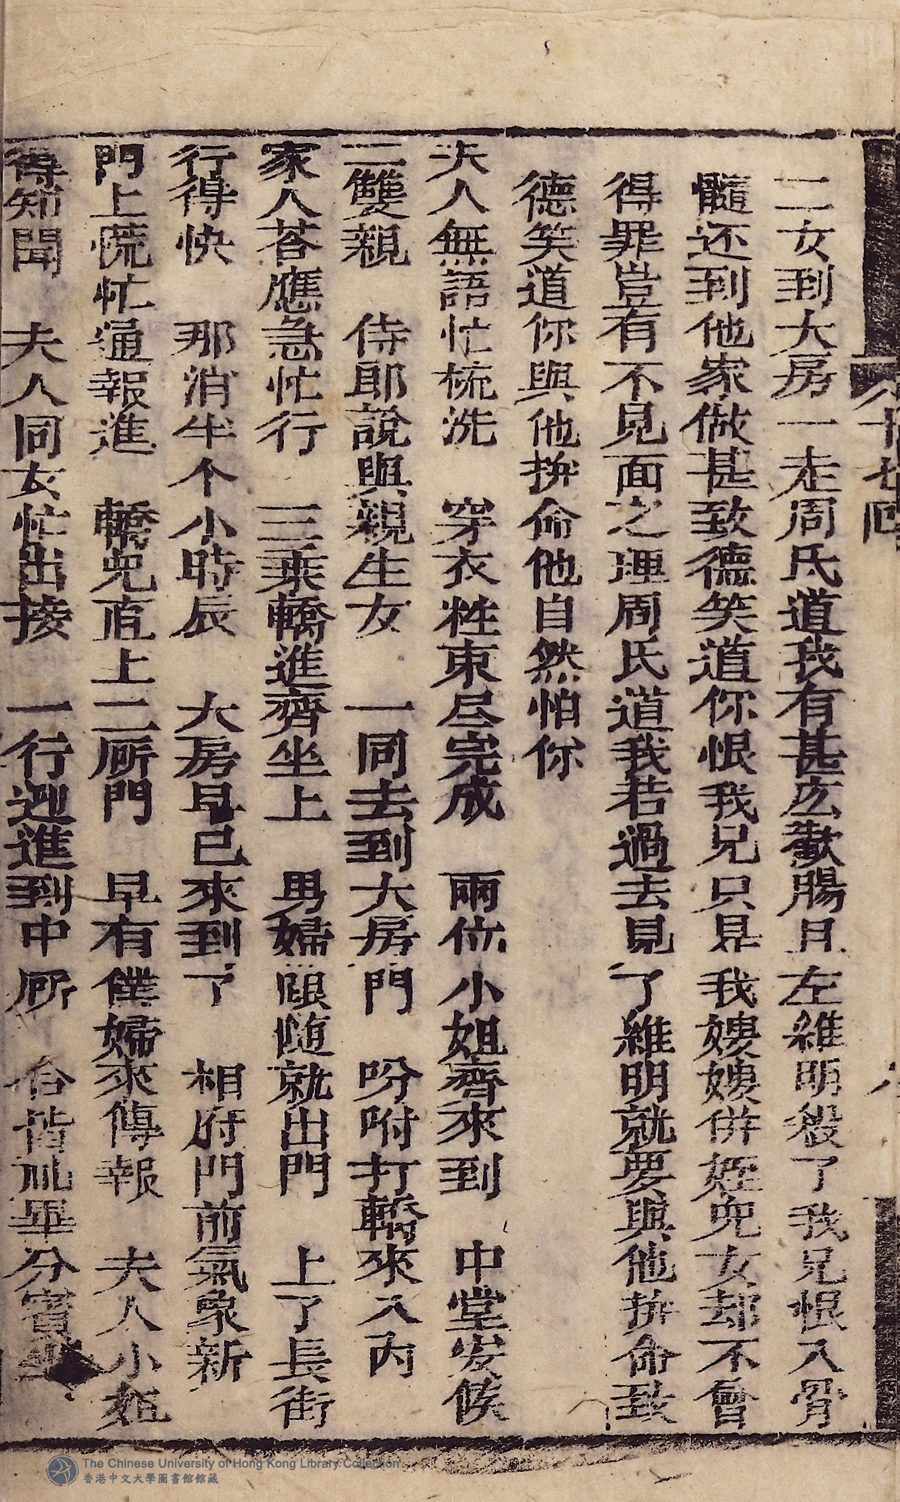 二女到大房一走周氏道我有甚広歡腸且左維明殺了我兄恨入骨
髓还到他家做甚致德笑道你恨我兄只是我嫂嫂併姪兜女却不曾
得罪豈有不見面之理周氏道我若過去見了維明就要與他拚命致
德笑道你與他拚命他自然怕你
夫人無語忙梳洗 穿衣粧束尽完成 兩位小姐齊來到 中堂安候
二雙親 侍郎說與親生女 一同去到大房門 吩咐打轎來入內
家人荅應急忙行 三乘轎進齊坐上 男婦跟随就出門 上了長街
行得快 那消半个小時辰 大房早已來到了 相府門前氣象新
門上慌忙通報進 轎兜直上二㕔門 早有僕婦來傳報 夫人小姐
得知聞 夫人同女忙出接 一行迎進到中㕔 合皆礼畢分賓坐
十七囬
The Chinese University of Hong Kong Library Collection
香港中文大學圖書館館藏